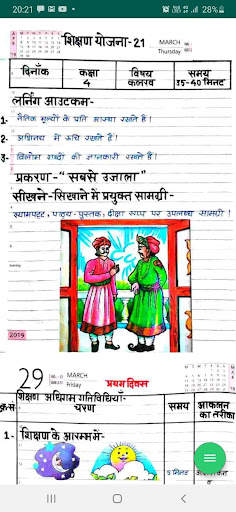 20:21
28%
शिक्षण योजना-21
MARCH
Thursday
दिनाँक कक्षा विषय समय
4 कलरव 35-40 मिनट
लर्निंग आउटकम-
1- नैतिक मूल्यों के प्रति आस्था रखते हैं।
2- अभिनय में रूचि रखते हैं।
3- विलोम शब्दों की जानकारी रखते हैं।
प्रकरण-"सबसे उजाला"
सीखने-सिखाने में प्रयुक्त सामग्री-
श्यामपट्ट, पाठ्य-पुस्तक, दीक्षा एप्प पर उपलब्ध सामग्री।
2019
29 MARCH
Friday
प्रथम दिवस
क्र.सं. शिक्षण अधिगम गतिविधियाँ- समय आकलन
चरण का तरीका
1- शिक्षण के आरम्भ में-
5 मिनट